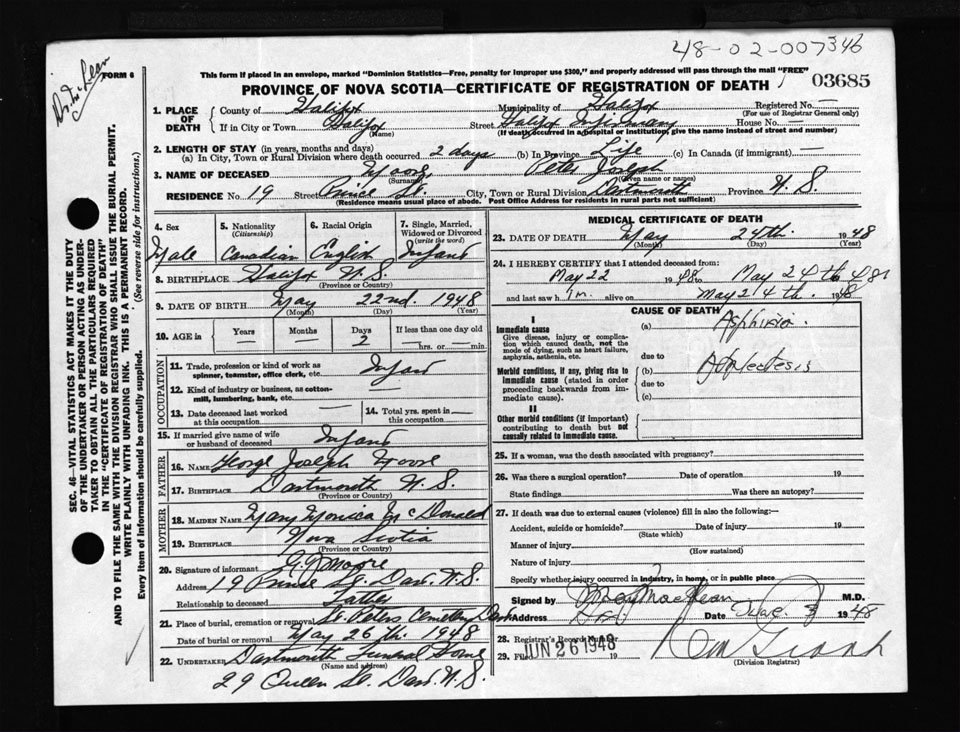 48-02-007346
Dr. McLean
FORM 6
This form if placed in an envelope, marked "Dominion Statistics—Free, penalty for improper use $300," and properly addressed will pass through the mail "FREE"
PROVINCE OF NOVA SCOTIA—CERTIFICATE OF REGISTRATION OF DEATH
03685
1. PLACE OF DEATH
County of Halifax
Municipality of Halifax
Registered No. —
(For use of Registrar General only)
If in City or Town Halifax
(Name)
Street Halifax Infirmary
House No. —
(If death occurred in a hospital or institution, give the name instead of street and number)
2. LENGTH OF STAY (in years, months and days)
(a) In City, Town or Rural Division where death occurred 2 days (b) In Province Life (c) In Canada (if immigrant) —
3. NAME OF DECEASED Moore Peter Joseph
(Surname) (Given name or names)
RESIDENCE No. 19 Street Prince St. City, Town or Rural Division Dartmouth Province N. S.
(Residence means usual place of abode. Post Office Address for residents in rural parts not sufficient)
4. Sex
Male
5. Nationality
(Citizenship)
Canadian
6. Racial Origin
English
7. Single, Married, Widowed or Divorced
(write the word)
Infant
8. BIRTHPLACE Halifax N. S.
(Province or Country)
9. DATE OF BIRTH May 22nd. 1948
(Month) (Day) (Year)
10. AGE in Years — Months — Days 2 If less than one day old
—hrs. or —min.
11. Trade, profession or kind of work as spinner, teamster, office clerk, etc. Infant
12. Kind of industry or business, as cotton-mill, lumbering, bank, etc. —
13. Date deceased last worked at this occupation —
14. Total yrs. spent in this occupation —
15. If married give name of wife or husband of deceased Infant
FATHER
16. NAME George Joseph Moore
17. BIRTHPLACE Dartmouth N. S.
(Province or Country)
MOTHER
18. MAIDEN NAME Mary Monica McDonald
19. BIRTHPLACE Nova Scotia
(Province or Country)
20. Signature of informant G. J. Moore
Address 19 Prince St. Dart. N. S.
Relationship to deceased Father
21. Place of burial, cremation or removal St. Peters Cemetery Dart
Date of burial or removal May 26th. 1948
22. UNDERTAKER Dartmouth Funeral Home
(Name and address)
29 Queen St. Dart. N. S.
MEDICAL CERTIFICATE OF DEATH
23. DATE OF DEATH May 24th 1948
(Month) (Day) (Year)
24. I HEREBY CERTIFY that I attended deceased from:
May 22 1948 to May 24th 48
and last saw him alive on May 24th. 1948
CAUSE OF DEATH
I
Immediate cause
Give disease, injury or complication which caused death, not the mode of dying, such as heart failure, asphyxia, asthenia, etc.
(a) Asphixia
due to
Morbid conditions, if any, giving rise to immediate cause (stated in order proceeding backwards from immediate cause).
(b) Atelectesis
due to
(c)
II
Other morbid conditions (if important) contributing to death but not causally related to immediate cause.
25. If a woman, was the death associated with pregnancy?
26. Was there a surgical operation? Date of operation 19
State findings Was there an autopsy?
27. If death was due to external causes (violence) fill in also the following:—
Accident, suicide or homicide? Date of injury 19
(State which)
Manner of injury
(How sustained)
Nature of injury
Specify whether injury occurred in industry, in home, or in public place
Signed by MacLean M.D.
Date 1948
28. Registrar's Record Number
29. Filed JUN 26 1948 19
(Division Registrar)
SEC. 46—VITAL STATISTICS ACT MAKES IT THE DUTY
OF THE UNDERTAKER OR PERSON ACTING AS UNDER-
TAKER TO OBTAIN ALL THE PARTICULARS REQUIRED
IN THE "CERTIFICATE OF REGISTRATION OF DEATH"
AND TO FILE THE SAME WITH THE DIVISION REGISTRAR WHO SHALL ISSUE THE BURIAL PERMIT.
WRITE PLAINLY WITH UNFADING INK. THIS IS A PERMANENT RECORD.
Every item of information should be carefully supplied. (See reverse side for instructions.)